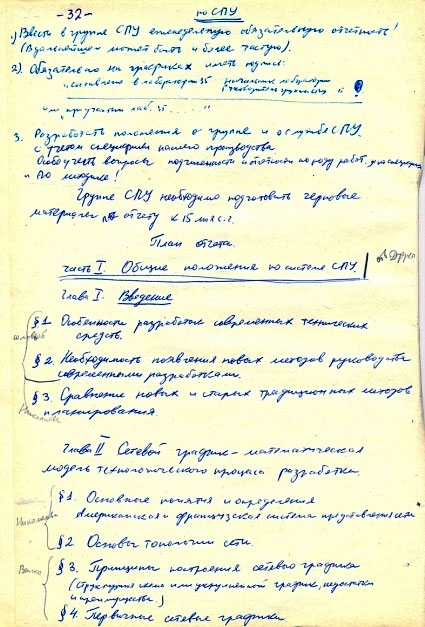 -32-
по СПУ
1) Ввести в группе СПУ еженедельную обязательную отчетность!
(В дальнейшем может быть и более частую).
2). Обязательно на графиках иметь подпись:
"составлено в лаборатории 35 начальник лаборатории
руководитель группы
" при участии лаб. 35 . . . . . "
3. Разработать положения о группе и о службе СПУ
с учетом специфики нашего производства
Особо учесть вопросы подчиненности и отчетности по ходу работ
и по
Группе СПУ необходимо подготовить черновые
материалы к отчету к 15 мая с.г.
План отчета.
часть I. Общие положения по системе СПУ.
Глава I. Введение
§ 1. Особенности разработок современных технических
средств.
§ 2. Необходимость появления новых методов руководства
современными разработками.
§ 3. Сравнение новых и старых традиционных методов
планирования.
Глава II Сетевой график - математическая
модель технологического процесса разработки.
§ 1. Основные понятия и определения
Американская и французская система представления сети
§ 2 Основы топологии сети.
§ 3. Принципы построения сетевого графика
(структурная схема или укрупненный график, недостатки
и преимущества.)
§ 4. Первичные сетевые графики.